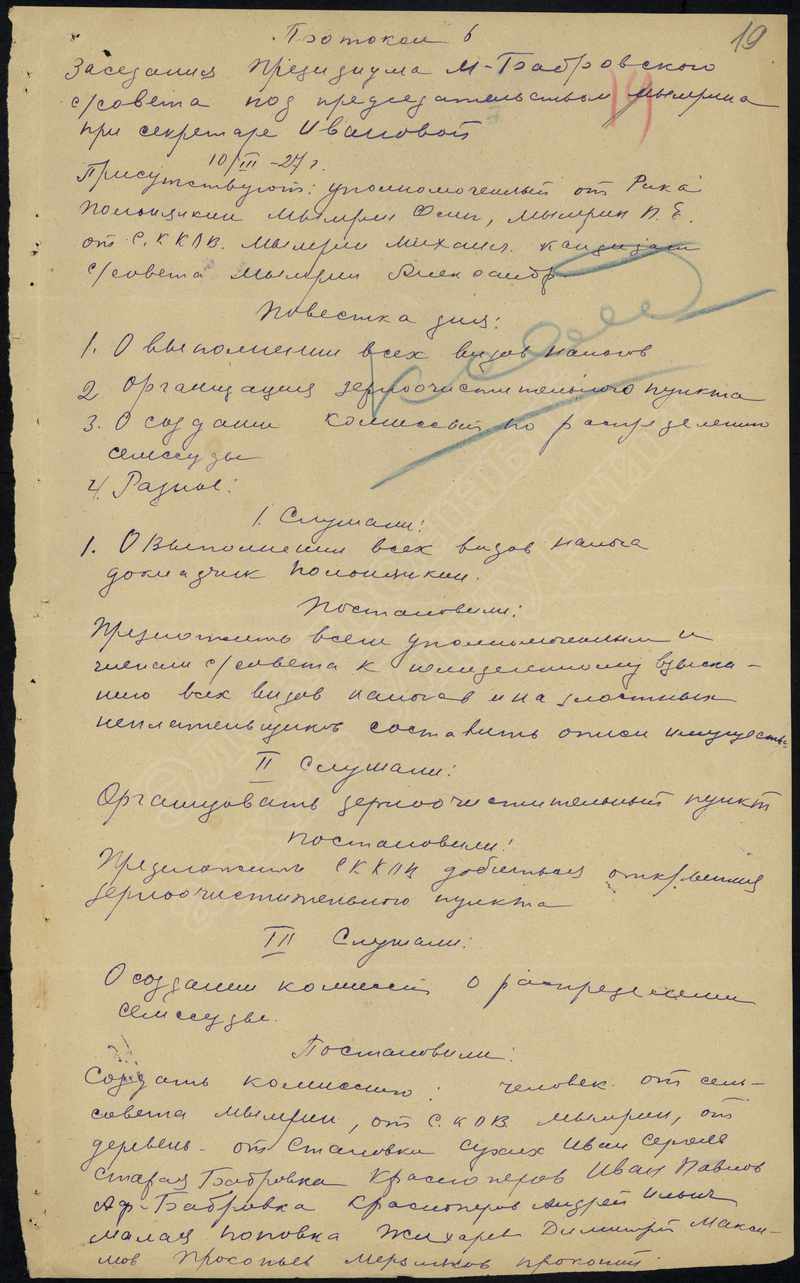 19
Протокол 6
Заседания Президиума М-Бабровского
с/совета под председательством Мымрина
19
при секретаре Ивановой
10/III-27 г.
Присутствуют: уполномоченный от Рика
Полыщикин Мымрин Осип, Мымрин П. Е.
от С.ККОВ. Мымрин Михаил. кандидат
с/совета Мымрин Александр
Повестка дня:
1. О выполнении всех видов налогов
2 Организация зерноочистительного пункта
3. О создании комиссий по распределению
семссуды
4. Разное:
1. Слушали:
1. О выполнении всех видов налога
докладчик Полыщикин.
Постановили:
Предложить всем уполномоченным и
членам с/совета к немедленному взыска-
нию всех видов налогов и на злостных
неплательщиков составить описи имущества
II Слушали:
Организовать зерноочистительный пункт
Постановили:
Предложить СККОВ добиться открытия
зерноочистительного пункта
III Слушали:
О создании комиссий о распределении
семссуды.
Постановили:
Создать комиссию: человек от сель-
совета Мымрин, от С.КОВ Мымрин, от
деревень- от Становки Сухих Иван Сергеев
Старая Бабровка Красноперов Иван Павлов
Аф-Бабровка Красноперов Андрей Ильич
Малая Поповка Жихарев Димитрий Макси-
мов Прокопьев Мерзляков Прокопий.